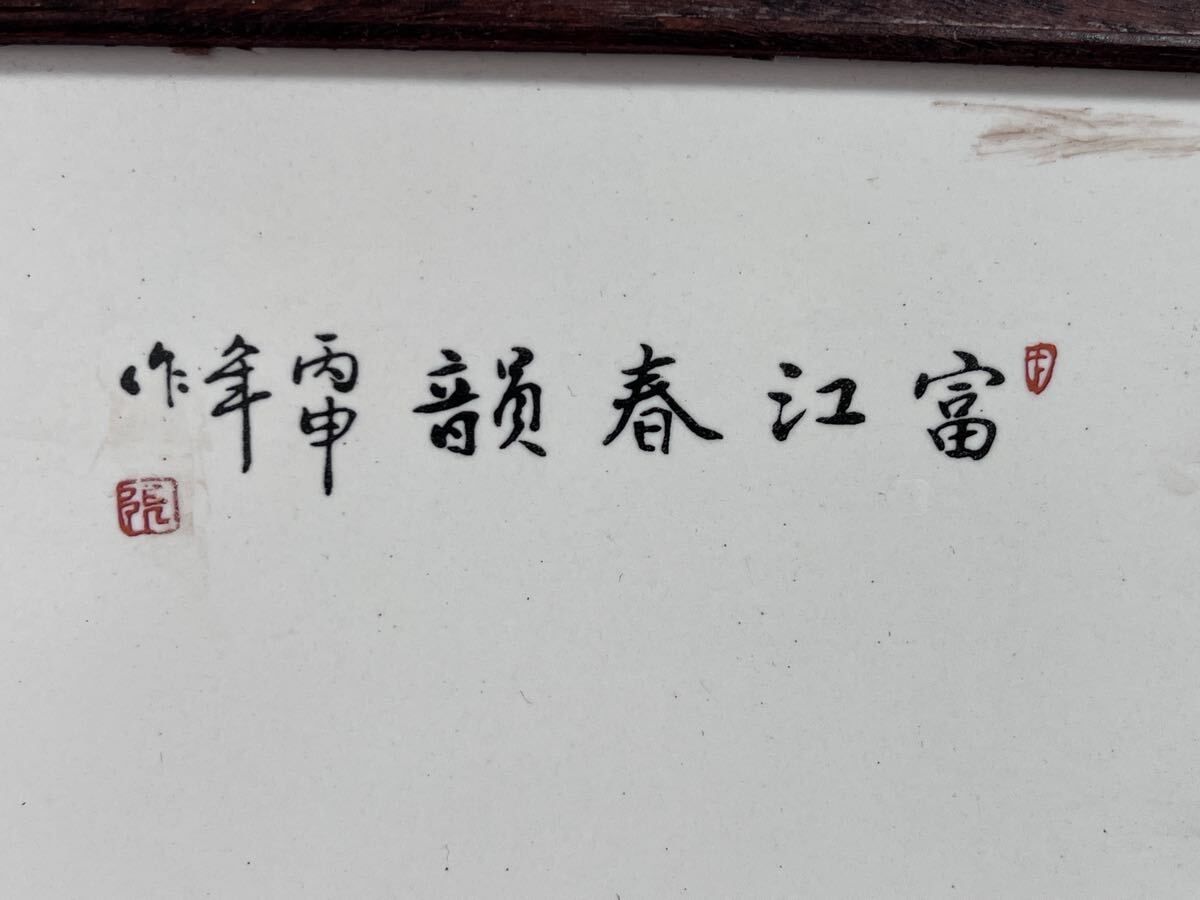 富江春韻
丙申
年
作